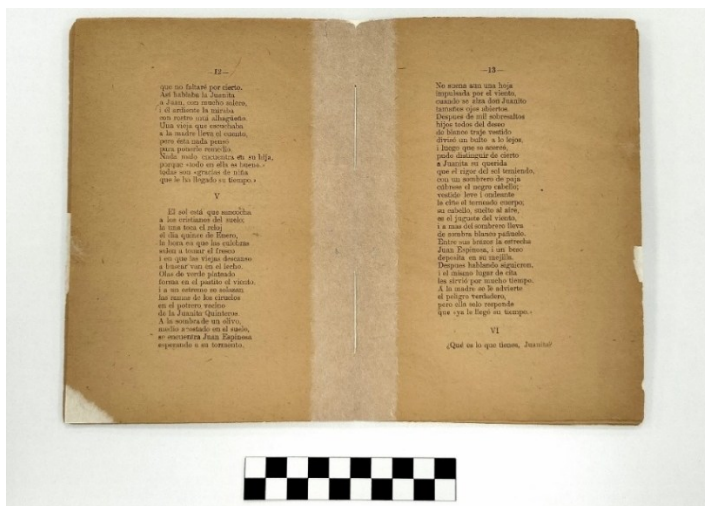 —12—
que no faltaré por cierto.
Así hablaba la Juanita
a Juan, con mucho salero,
i él ardiente la miraba
con rostro mui alhagüeño.
Una vieja que escuchaba
a la madre lleva el cuento,
pero ésta nada pensó
para ponerle remedio.
Nada malo encuentra en su hija,
porque «todo en ella es bueno.»
todas son «gracias de niña
que le ha llegado su tiempo.»
V
El sol está que sancocha
a los cristianos del suelo;
la una toca el reloj
el dia quince de Enero,
la hora en que las culebras
salen a tomar el fresco
i en que las viejas descanso
a buscar van en el lecho.
Olas de verde plateado
forma en el pastito el viento,
i a un estremo se solazan
las ramas de los ciruelos
en el potrero vecino
de la Juanita Quinteros
A la sombra de un olivo,
medio acostado en el suelo,
se encuentra Juan Espinosa
esperando a su tormento.
—13—
No suena aun una hoja
impulsada por el viento,
cuando se alza don Juanito
tamaños ojos abiertos.
Despues de mil sobresaltos
hijos todos del deseo
de blanco traje vestido
divisó un bulto a lo léjos,
i luego que se acerca,
pudo distinguir de cierto
a Juanita su querida
que el rigor del sol temiendo,
con un sombrero de paja
cúbrese su negro cabello;
vestido leve i ondeante
la ciñe el torneado cuerpo;
su cabello, suelto al aire,
es el juguete del viento,
i a mas del sombrero lleva
de sombra blanco pañuelo.
Entre sus brazos la estrecha
Juan Espinosa, i un beso
deposita en su mejilla.
Despues hablando siguieron,
i el mismo lugar de cita
les sirvió por mucho tiempo.
A la madre se le advierte
el peligro verdadero,
pero ella solo responde
que «ya le llegó su tiempo.»
VI
¿Qué es lo que tienes, Juanita?